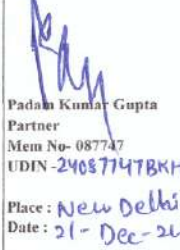 Padam Kumar Gupta
Partner
Mem No- 087747
UDIN - 24087747BKH
Place : New Delhi
Date : 21 - Dec - 24